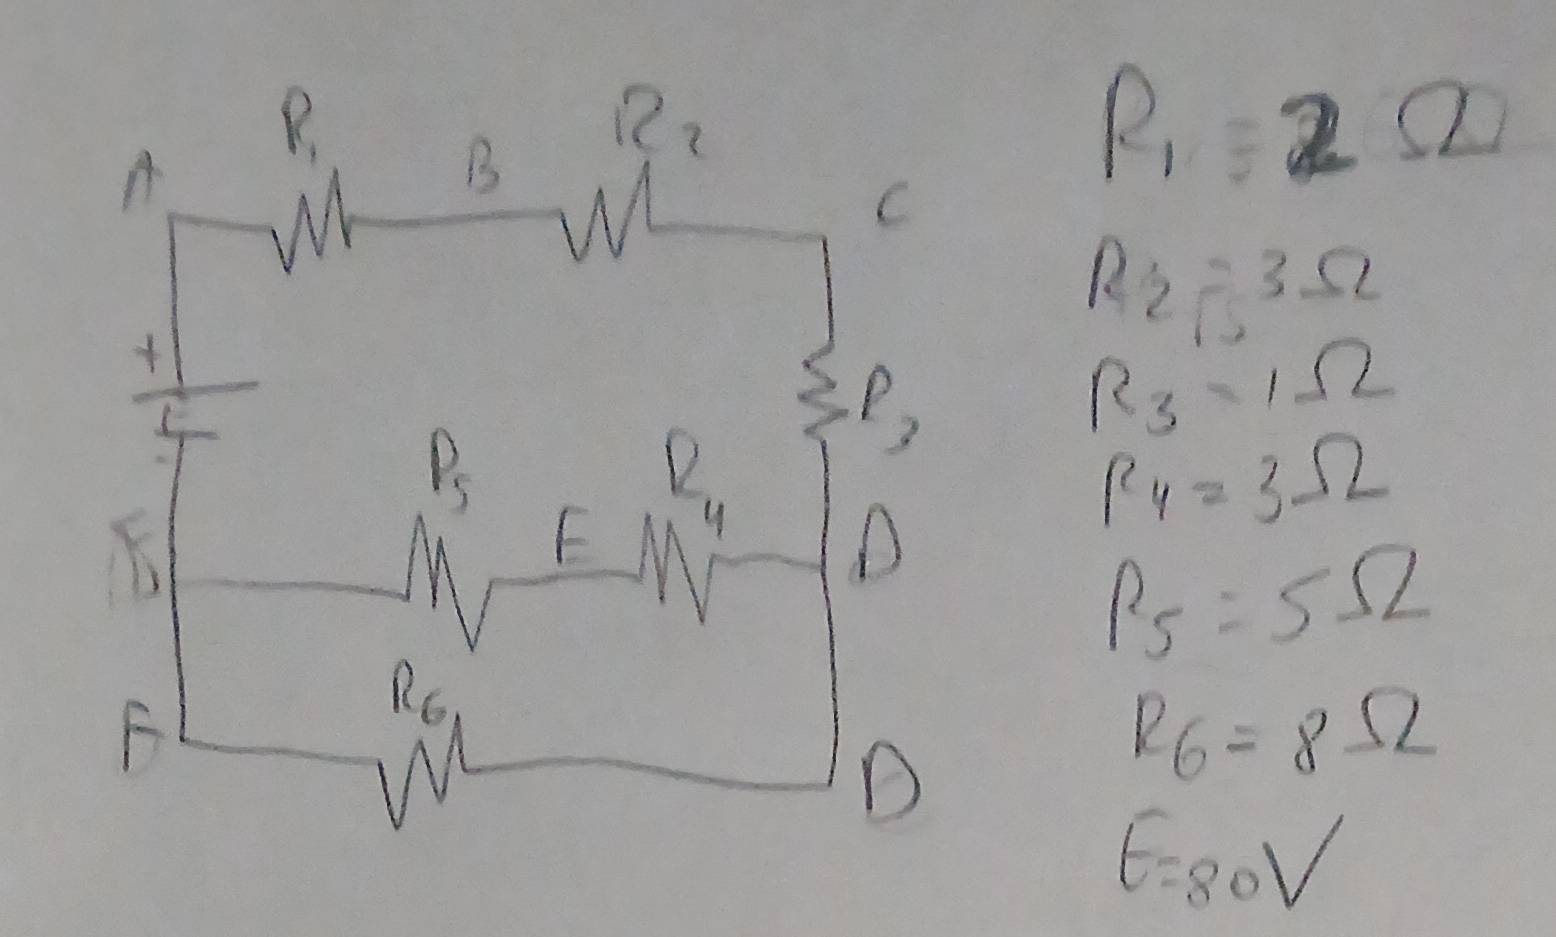 A
R1
B
R2
C
+
R3
R5
E
R4
D
R6
D
R1 = 2 Ω
R2 = 3 Ω
R3 = 1 Ω
R4 = 3 Ω
R5 = 5 Ω
R6 = 8 Ω
E = 80 V